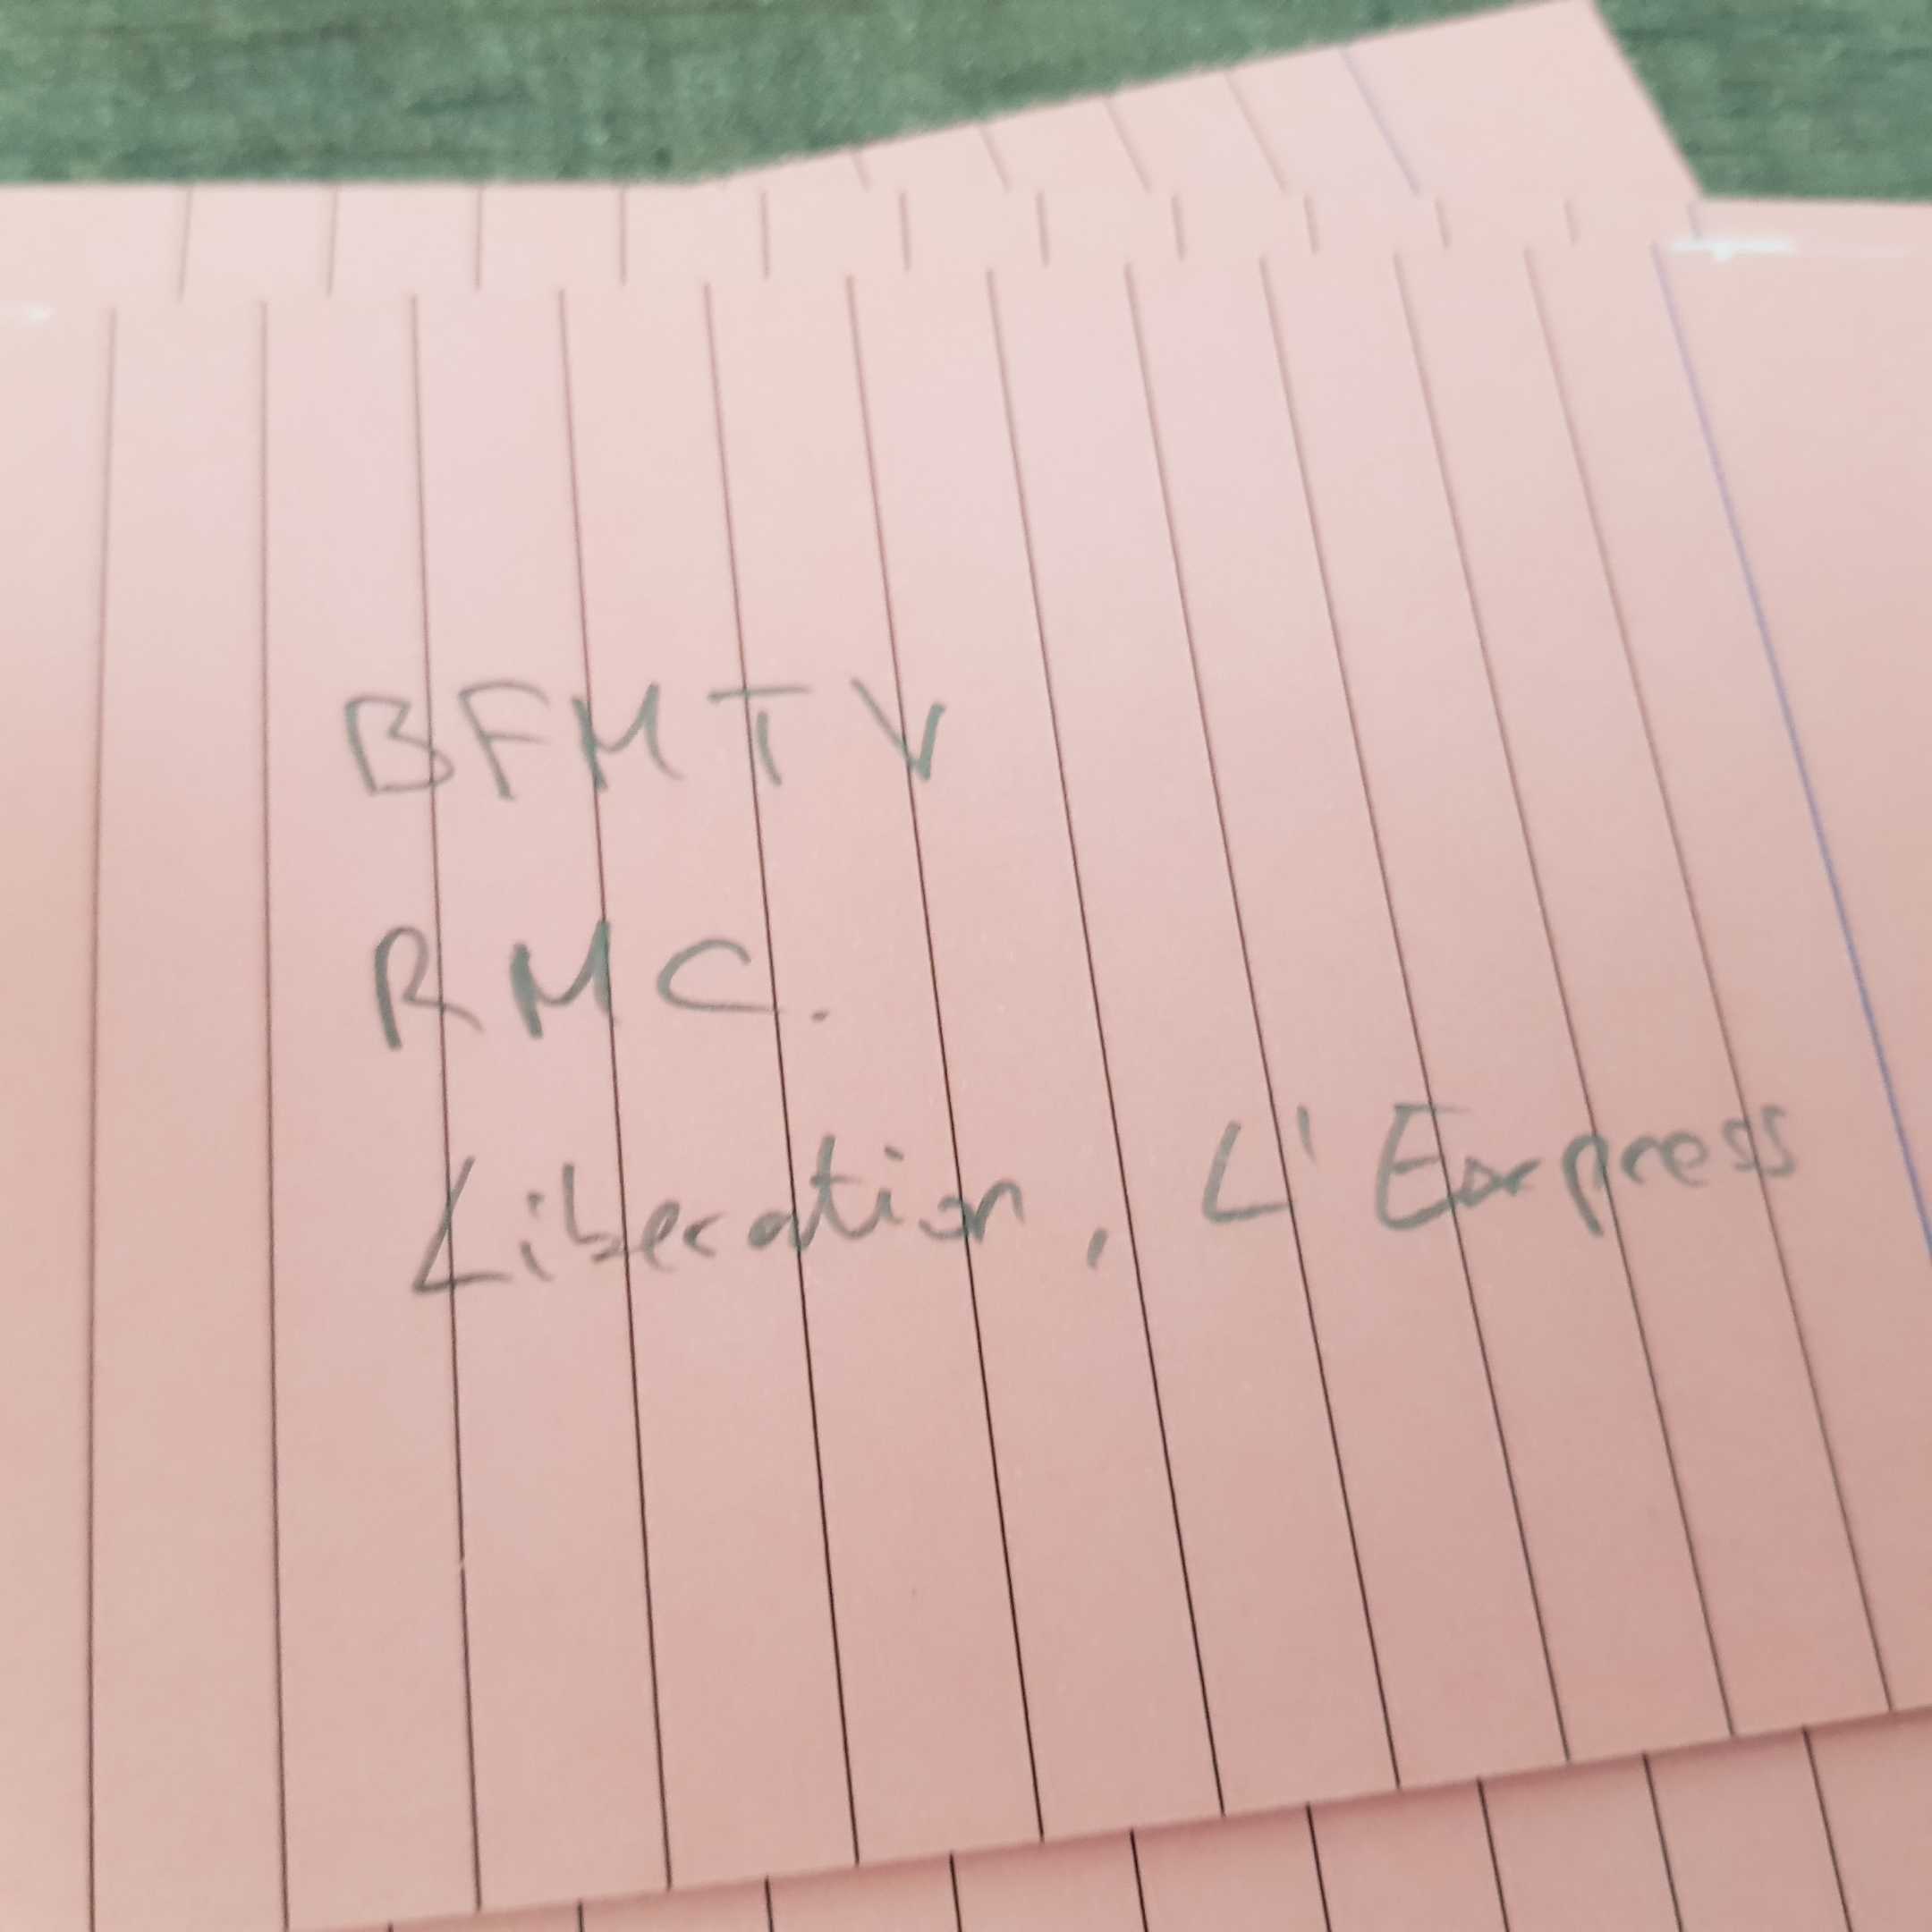 BFMTV
RMC.
Liberation, L'Express